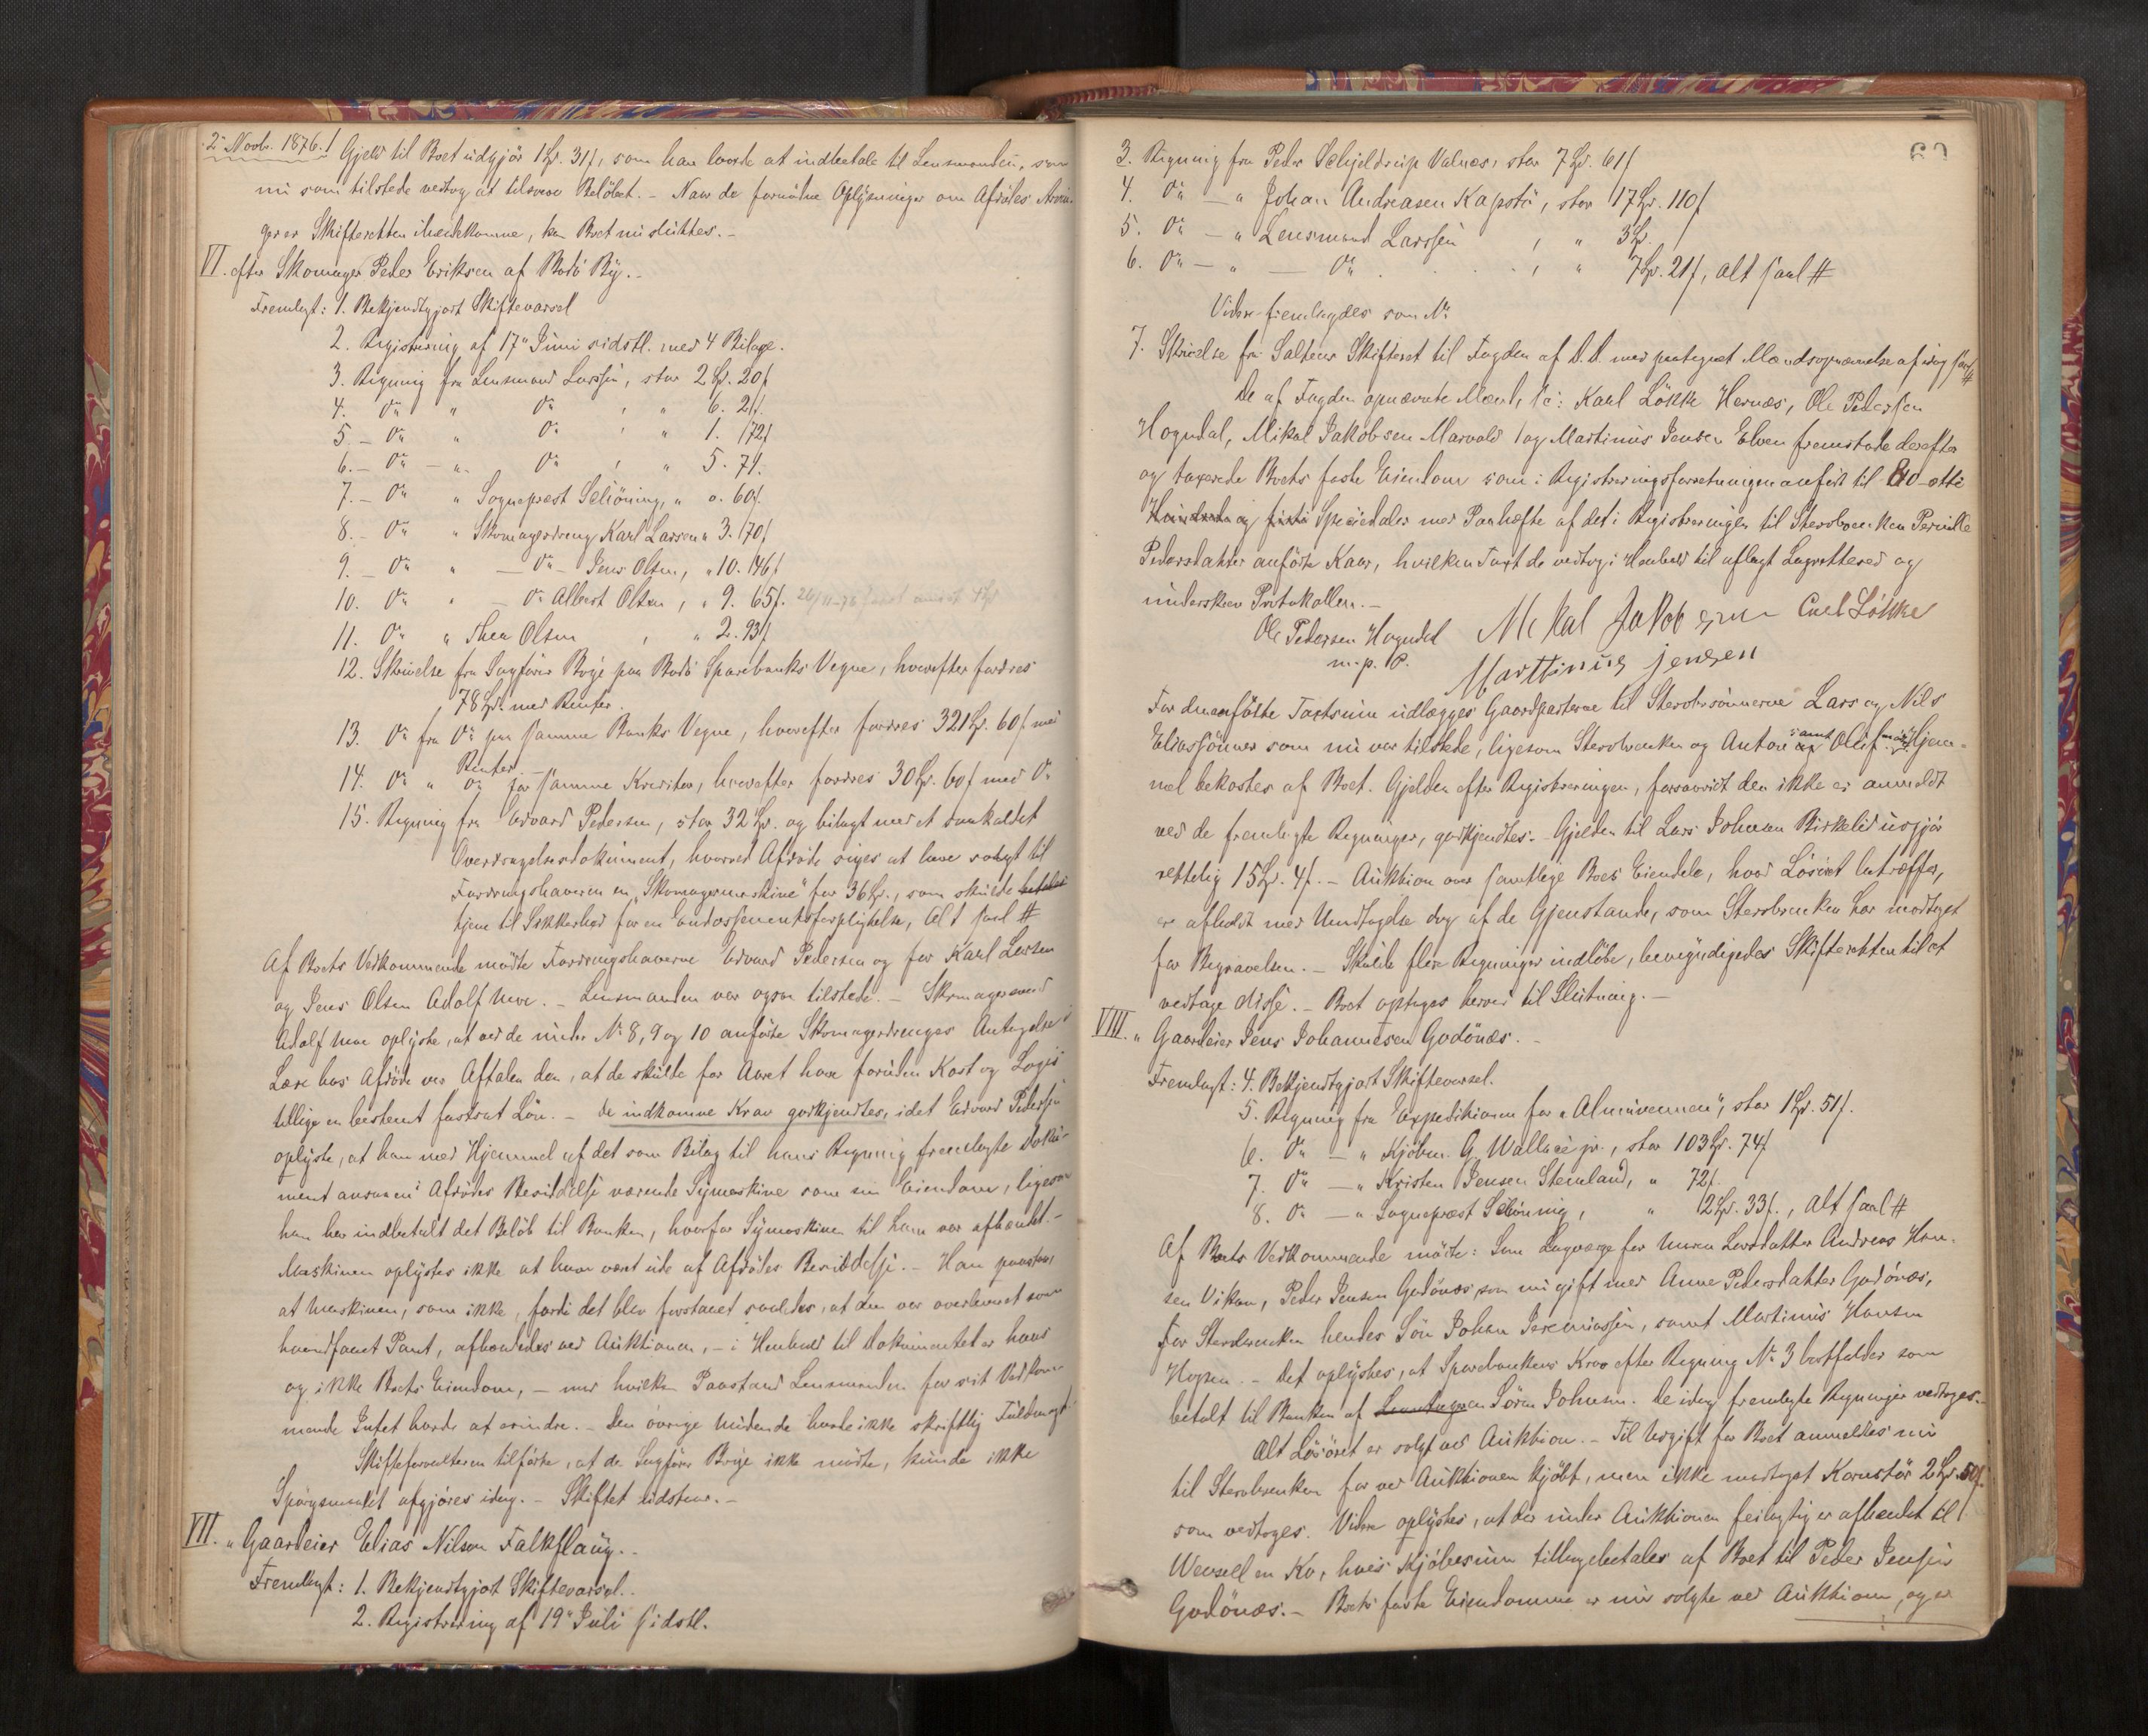 2' Novbr. 1876.! Gjeld til Boet udgjør 1 Spd. 31 s, som han lovede at indbetale til Lensmanden, som
nu som tilstede vedtog at tilsvare Beløbet. - Naar de fornødne Oplysninger om Afdødes Arvin-
ger er Skifteretten ihændekomne, kan Boet nu sluttes. -
VI. efter Skomager Peder Eriksen af Bodø By. -
Fremlagt: 1. Bekjendtgjort Skiftevarsel
2. Registrering af 17' Juni sidstl. med 4 Bilage.
3. Regning fra Lensmand Larssen, stor 2 Spd. 20 s
4. Do " Do , " 6. 21.
5. - Do " Do , " 1. 172 s
6. - Do - " - Do , " 5. 71.
7. - Do " Sognepræst Schöning, " 0. 60 s.
8. - Do " Skomagerdreng Karl Larsen " 3. 170 s
9. - Do " - Do - Jens Olsen, " 10. 146 s
10. Do " - Do Albert Olsen, " 9. 65 s.
11. Do " Thea Olsen , " 2. 93 s
12. Skrivelse fra Sagfører Böge paa Bodø Sparebanks Vegne, hvorefter fordres
78 Spd. med Renter.
13. Do fra Do paa samme Banks Vegne, hvorefter fordres 321 Spd. 60 s. med
Renter -
14. Do " Do for samme Kreditor, hvorefter fordres 30 Spd. 60 s med Do
15. Regning fra Edvard Pedersen, stor 32 Spd. og bilagt med et saakaldet
Overdragelsesdokument, hvorved Afdøde siges at have solgt til
Fordringshaveren en "Skomagermaskine" for 36 Spd., som skulde betales
tjene til Sikkerhed for en Endossementsforpligtelse, Alt saal #
Af Boets Vedkommende mødte Fordringshaverne Edvard Pedersen og for Karl Larsen
og Jens Olsen Adolf Moe. - Lensmanden var ogsaa tilstede. - Skomagersvend
Adolf Moe oplyste, at ved de under No 8, 9 og 10 anførte Skomagerdrenges Antagelse i
Lære hos Afdøde var Aftalen den, at de skulde for Aaret have foruden Kost og Logis
tillige en bestemt fastsat Løn. - De indkomne Krav godkjendtes, idet Edvard Pedersen
oplyste, at han med Hjemmel af det som Bilag til hans Regning fremlagte Doku-
ment ansaa en i Afdødes Besiddelse værende Symaskine som sin Eiendom, ligesom
han har indbetalt det Beløb til Banken, hvorfor Symaskinen til ham var afhændet. -
Maskinen oplystes ikke at have været ude af Afdødes Besiddelse. - Han paastod
at Maskinen, som ikke, fordi det blev forstaaet saaledes, at den var overleveret som
haandfaaet Pant, afhændedes ved Auktionen, - i Henhold til Dokumentet er hans
og ikke Boets Eiendom, - mod hvilken Paastand Lensmanden for sit Vedkom-
mende Intet havde at erindre. - Den øvrige Mødende havde ikke skriftlig Fuldmagt.
Skifteforvalteren tilførte, at da Sagfører Böge ikke mødte, kunde ikke
Spørgsmalet afgjøres idag. - Skiftet udstaar. -
VII. " Gaardeier Elias Nilsen Falkflaug. -
Fremlagt: 1. Bekjendtgjort Skiftevarsel. -
2. Registrering af 19' Juli sidstl.
3. Regning fra Peder Schjeldrup Valnæs, stor 7 Spd. 61 s
4. Do - " Johan Andreasen Kapstø, stor 17 Spd. 110 s
5. Do - " Lensmand Larssen , " 3 Spd.
6. Do - " - Do . . . . , " 7 Spd. 21 s, alt saal #
Videre fremlagdes som No
7. Skrivelse fra Saltens Skifteret til Fogden af D.D. med paategnet Mændsopnævnelse af idag saal #
De af Fogden opnævnte Mænd, sc: Karl Løkke Hernæs, Ole Pedersen
Hogndal, Mikal Jakobsen Marvold og Martinus Jensen Elven fremstode derefter
og taxerede Boets faste Eiendom som i Registreringsforretningen anført til 80 - otti
Hundrede og firti Speciedaler med Paahæfte af det i Registreringen til Stervboenken Pernille
Pedersdatter anførte Kaar, hvilken Taxt de vedtog i Henhold til aflagt Lagretteed og
underskrev Protokollen. -
Ole Pedersen Hogndal Mikal Jakobsen Carl Løkke
m. p. P. Marttinus Jensen
For den ansatte Taxtsum udlægges Gaardparterne til Stervbosønnerne Lars og Nils
Eliassønner som nu var tilstede, ligesom Stervboenken og Anton samt Oluf. Hjem-
mel bekostes af Boet. Gjelden efter Registreringen, forsaavidt den ikke er anmeldt
ved de fremlagte Regninger, godkjendtes. Gjelden til Lars Johnsen Birkelid udgjør
rettelig 15 Spd. 4 s. - Auktion over samtlige Boets Eiendele, hvad Løsøret betræffer,
er afholdt med Undtagelse dog af de Gjenstande, som Stervboenken har modtaget
for Begravelsen. - Skulde flere Regninger indløbe, bemyndigedes Skifteretten til at
vedtage disse. - Boet optages herved til Slutning. -
VIII. " Gaardeier Jens Johannesen Godönæs. -
Fremlagt: 4. Bekjendtgjort Skiftevarsel.
5. Regning fra Expeditionen for "Almuevennen", stor 1 Spd. 51 s.
6. Do - " Kjøbm. G. Wallace jr., stor 103 Spd. 74 s
7. Do - " Kristen Jensen Stemland, " 72 s.
8. Do - " Sognepræst Schöning, " 2 Spd. 33 s., alt saal #
Af Boets Vedkommende mødte: Som Lagværge for Maren Larsdatter Andreas Han-
sen Vikan, Peder Jensen Godönæs som nu gift med Anne Pedersdatter Godönæs,
For Stervboenken hendes Søn Johan Jeremiassen, samt Martinus Hansen
Hopen. - Det oplystes, at Sparebankens Krav efter Regning No 3 bortfalder som
betalt til Banken af Søren Johnsen. De idag fremlagte Regninger vedtoges. -
Alt Løsøret er solgt ved Auktion. - Til Udgift for Boet anmeldtes nu
til Stervboenken for ved Auktionen kjøbt, men ikke modtaget Kornstør 2 Spd. 50 s.
som vedtoges. Videre oplystes, at der under Auktionen feilagtig er afhændet til
Wensell en Ko, hvis Kjøbesum tilbagebetales af Boet til Peder Jensen
Godönæs. - Boets faste Eiendomme er nu solgte ved Auktion, og er